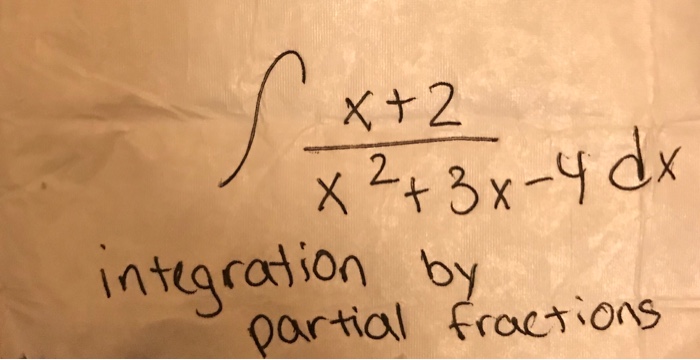 ∫ x+2
x²+3x-4 dx
integration by
partial fractions